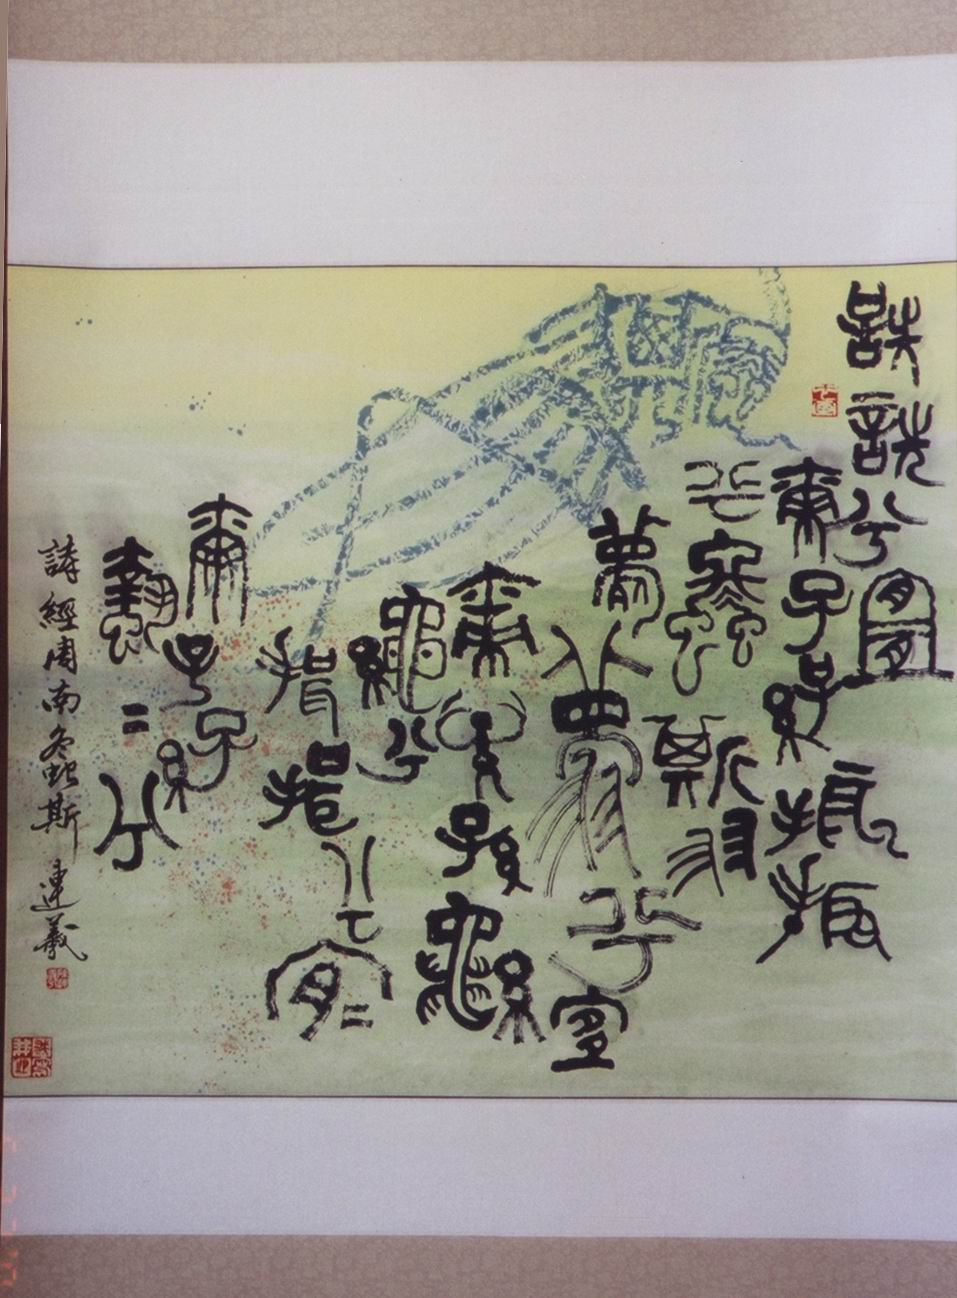 詵詵兮宜
爾子孫振振
兮螽斯羽
薨薨兮宜
爾子孫繩
繩兮
揖揖兮宜
爾子孫
蟄〻兮
詩經周南螽斯 連